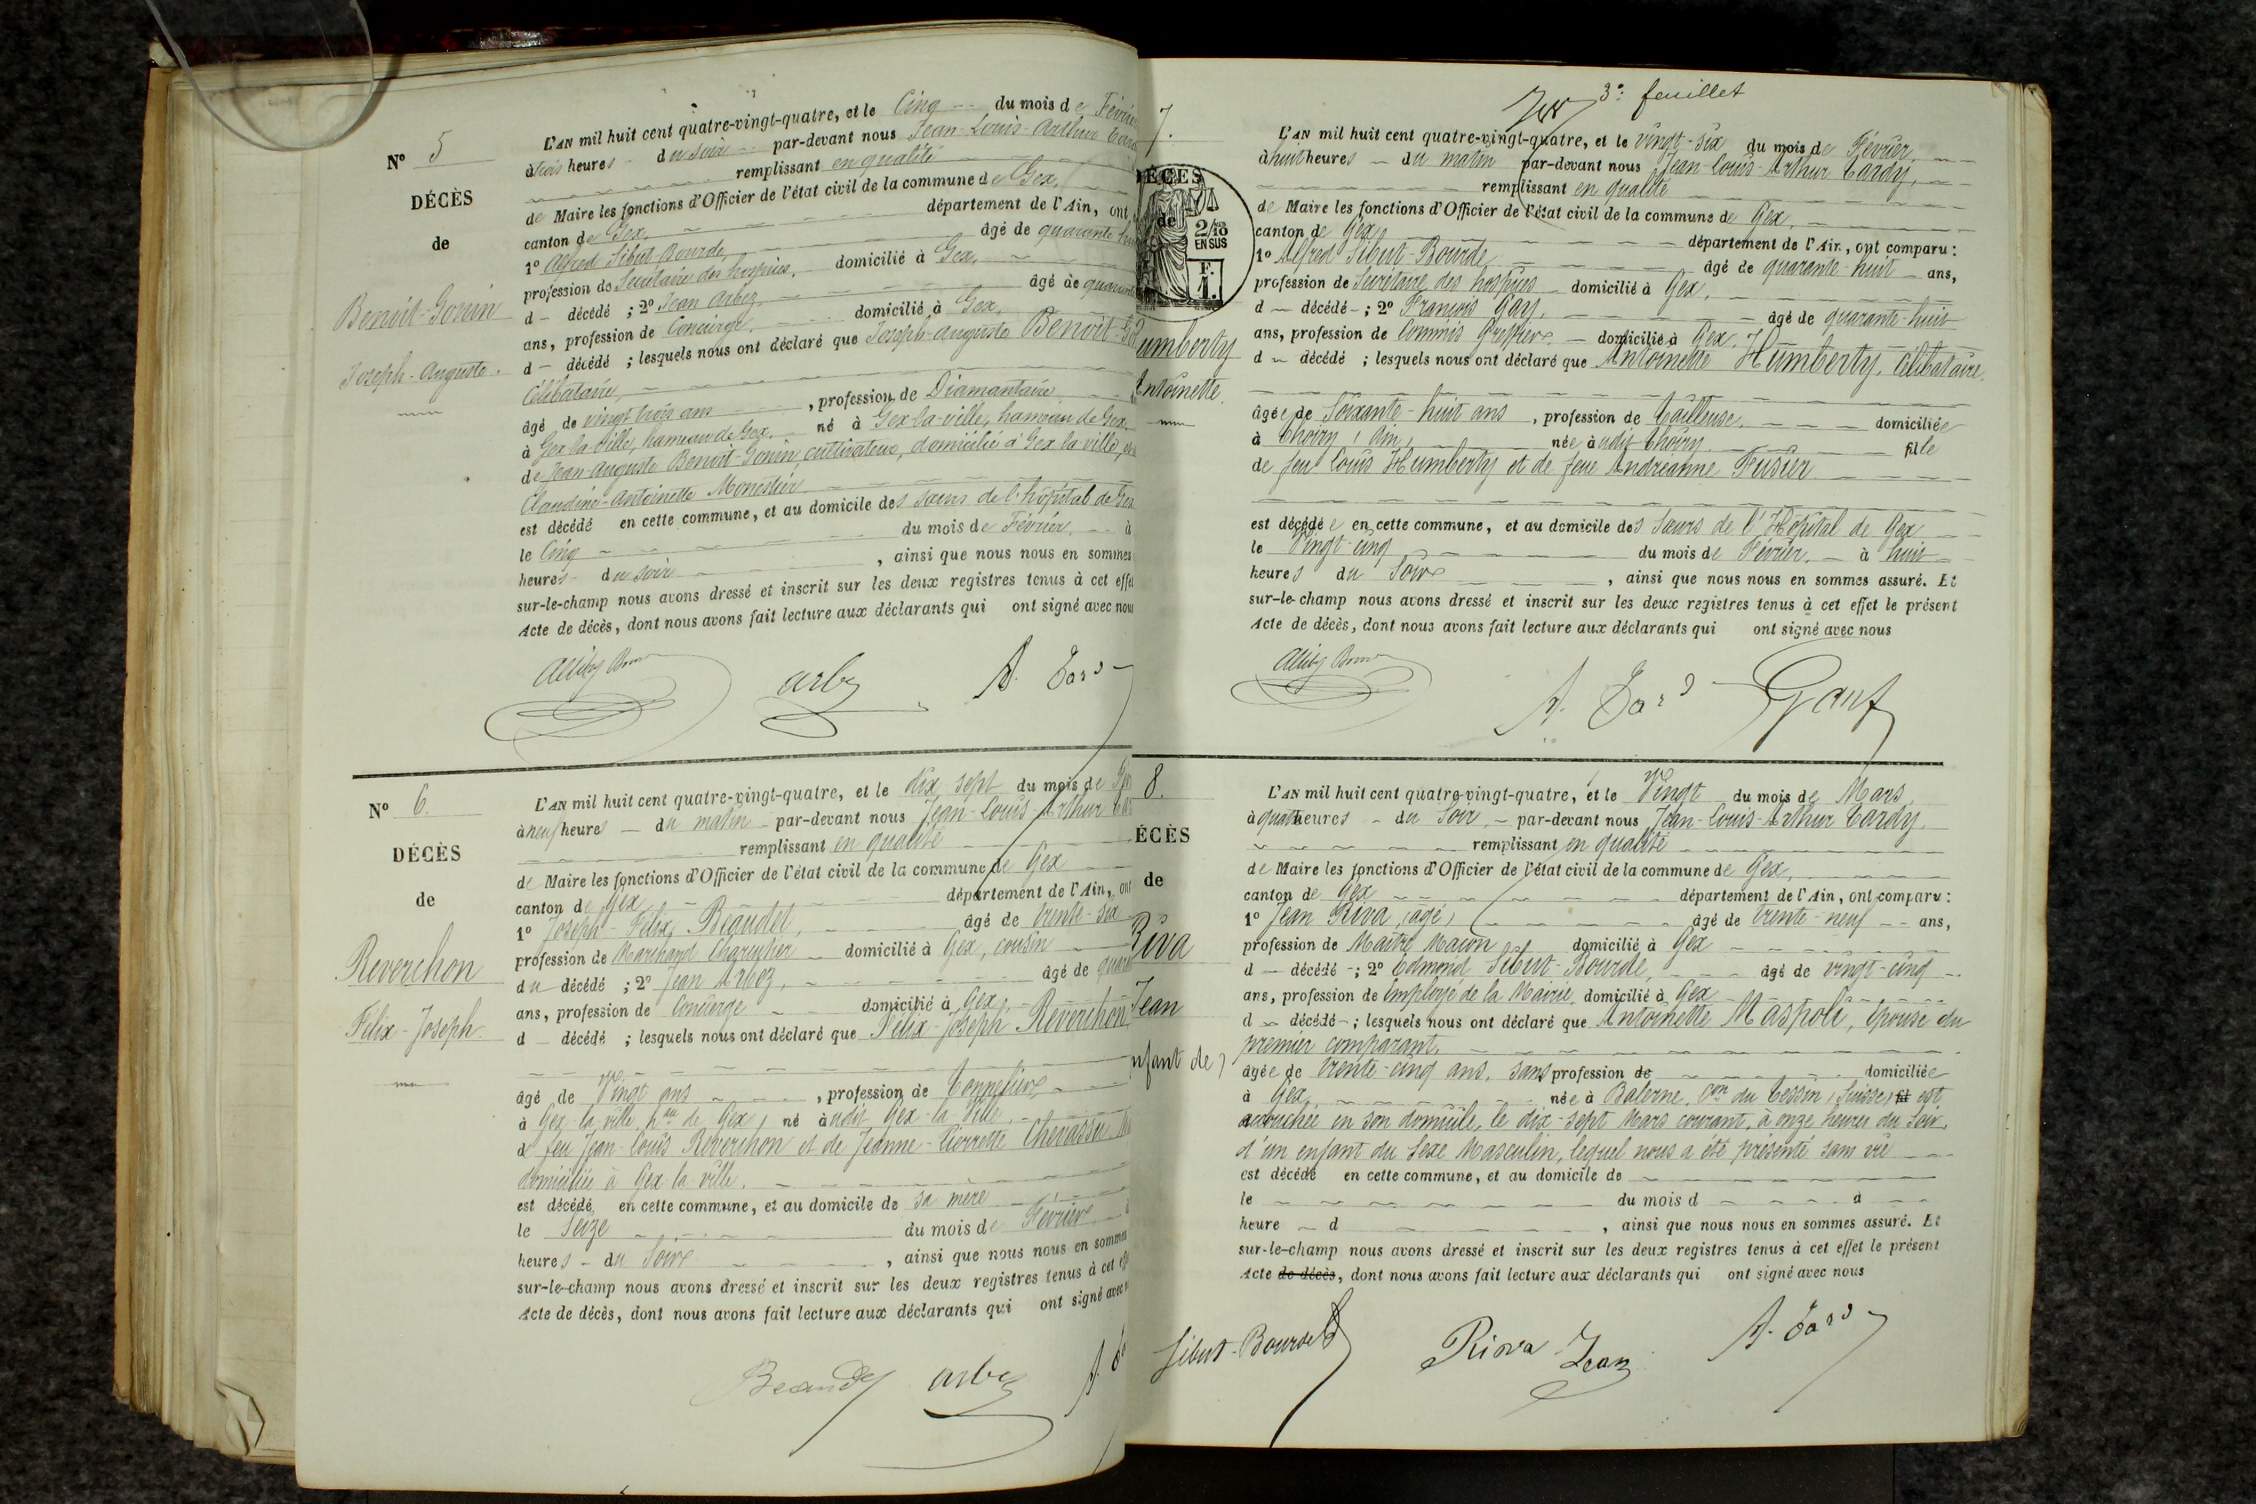 Nº 5
DÉCÈS
de
Benoit-Gonin
Joseph-Auguste.
L'AN mil huit cent quatre-vingt-quatre, et le Cinq du mois de Février
à trois heures du soir par-devant nous Jean-Louis-Arthur
remplissant en qualité
de Maire les fonctions d'Officier de l'état civil de la commune de Gex.
canton de Gex. département de l'Ain, ont
1º Alfred Sibut Bourde, âgé de quarante huit
profession de Secrétaire des hospices, domicilié à Gex.
d décédé ; 2º Jean Arbez. âgé de
ans, profession de Concierge. domicilié à Gex.
d décédé ; lesquels nous ont déclaré que Joseph-Auguste Benoit-
Célibataire,
âgé de vingt trois ans , profession de Diamantaire
à Gex-la-Ville, hameau de Gex. né à Gex-la-ville, hameau de Gex.
de Jean-Auguste Benoit-Gonin, cultivateur, domicilié à Gex la ville, et
Claudine-Antoinette Monestier
est décédé en cette commune, et au domicile des sœurs de l'hôpital de Gex
le Cinq du mois de Février. à
heures du soir , ainsi que nous nous en sommes
sur-le-champ nous avons dressé et inscrit sur les deux registres tenus à cet effet
Acte de décès, dont nous avons fait lecture aux déclarants qui ont signé avec nous
arbez
Nº 6.
DÉCÈS
de
Reverchon
Félix-Joseph.
L'AN mil huit cent quatre-vingt-quatre, et le dix sept du mois de
à neuf heures du matin par-devant nous Jean-Louis-Arthur
remplissant en qualité
de Maire les fonctions d'Officier de l'état civil de la commune de Gex
canton de Gex département de l'Ain, ont
1º Joseph-Félix Béaudet, âgé de trente-six
profession de Marchand Charcutier domicilié à Gex, cousin
du décédé ; 2º Jean Arbez, âgé de
ans, profession de Concierge domicilié à Gex,
d décédé ; lesquels nous ont déclaré que Félix-Joseph Reverchon
âgé de Vingt ans , profession de Tonnelier
à Gex la ville, hau de Gex, né audit Gex-la-Ville
de feu Jean-Louis Reverchon et de Jeanne-Pierrette Chevassu
domiciliée à Gex la ville.
est décédé en cette commune, et au domicile de sa mère
le Seize du mois de Février
heures du Soir , ainsi que nous nous en sommes
sur-le-champ nous avons dressé et inscrit sur les deux registres tenus à cet
Acte de décès, dont nous avons fait lecture aux déclarants qui ont signé avec
Beaudet arbez
3e: feuillet
7.
DÉCÈS
de
2/10
EN SUS
F.
1.
umberty
Antoinette.
L'AN mil huit cent quatre-vingt-quatre, et le vingt-six du mois de Février.
à huit heures du matin par-devant nous Jean-Louis-Arthur Tardy,
remplissant en qualité
de Maire les fonctions d'Officier de l'état civil de la commune de Gex.
canton de Gex, département de l'Ain, ont comparu :
1º Alfred Sibut-Bourde, âgé de quarante-huit ans,
profession de Secrétaire des hospices domicilié à Gex.
d décédé ; 2º François Gay, âgé de quarante-huit
ans, profession de Commis Greffier domicilié à Gex.
d décédé ; lesquels nous ont déclaré que Antoinette Humberty, Célibataire.
âgée de Soixante-huit ans , profession de Tailleuse. domiciliée
à Thoiry (Ain) née audit Thoiry fille
de feu Louis Humberty et de feue Andréanne Fusier
est décédée en cette commune, et au domicile des Sœurs de l'Hôpital de Gex
le Vingt-cinq du mois de Février. à huit
heures du Soir , ainsi que nous nous en sommes assuré. Et
sur-le-champ nous avons dressé et inscrit sur les deux registres tenus à cet effet le présent
Acte de décès, dont nous avons fait lecture aux déclarants qui ont signé avec nous
8.
ÉCÈS
de
Riva
Jean
nfant de)
L'AN mil huit cent quatre-vingt-quatre, et le Vingt du mois de Mars
à quatre heures du Soir, par-devant nous Jean-Louis-Arthur Tardy.
remplissant en qualité
de Maire les fonctions d'Officier de l'état civil de la commune de Gex.
canton de Gex département de l'Ain, ont comparu :
1º Jean Riva, (âgé) âgé de trente-neuf ans,
profession de Maître Maçon domicilié à Gex
d décédé ; 2º Edmond Sibut-Bourde, âgé de vingt-cinq
ans, profession de Employé de la Mairie domicilié à Gex
d décédé ; lesquels nous ont déclaré que Antoinette Maspoli, épouse du
premier comparant.
âgée de trente-cinq ans. sans profession de domiciliée
à Gex, née à Balerne Con du Tessin (Suisse) fil est
accouchée en son domicile, le dix-sept Mars courant, à onze heures du Soir,
d'un enfant du Sexe Masculin, lequel nous a été présenté sans vie
est décédé en cette commune, et au domicile de
le du mois d à
heure d , ainsi que nous nous en sommes assuré. Et
sur-le-champ nous avons dressé et inscrit sur les deux registres tenus à cet effet le présent
Acte de décès, dont nous avons fait lecture aux déclarants qui ont signé avec nous
Sibut-Bourde Riova Jean